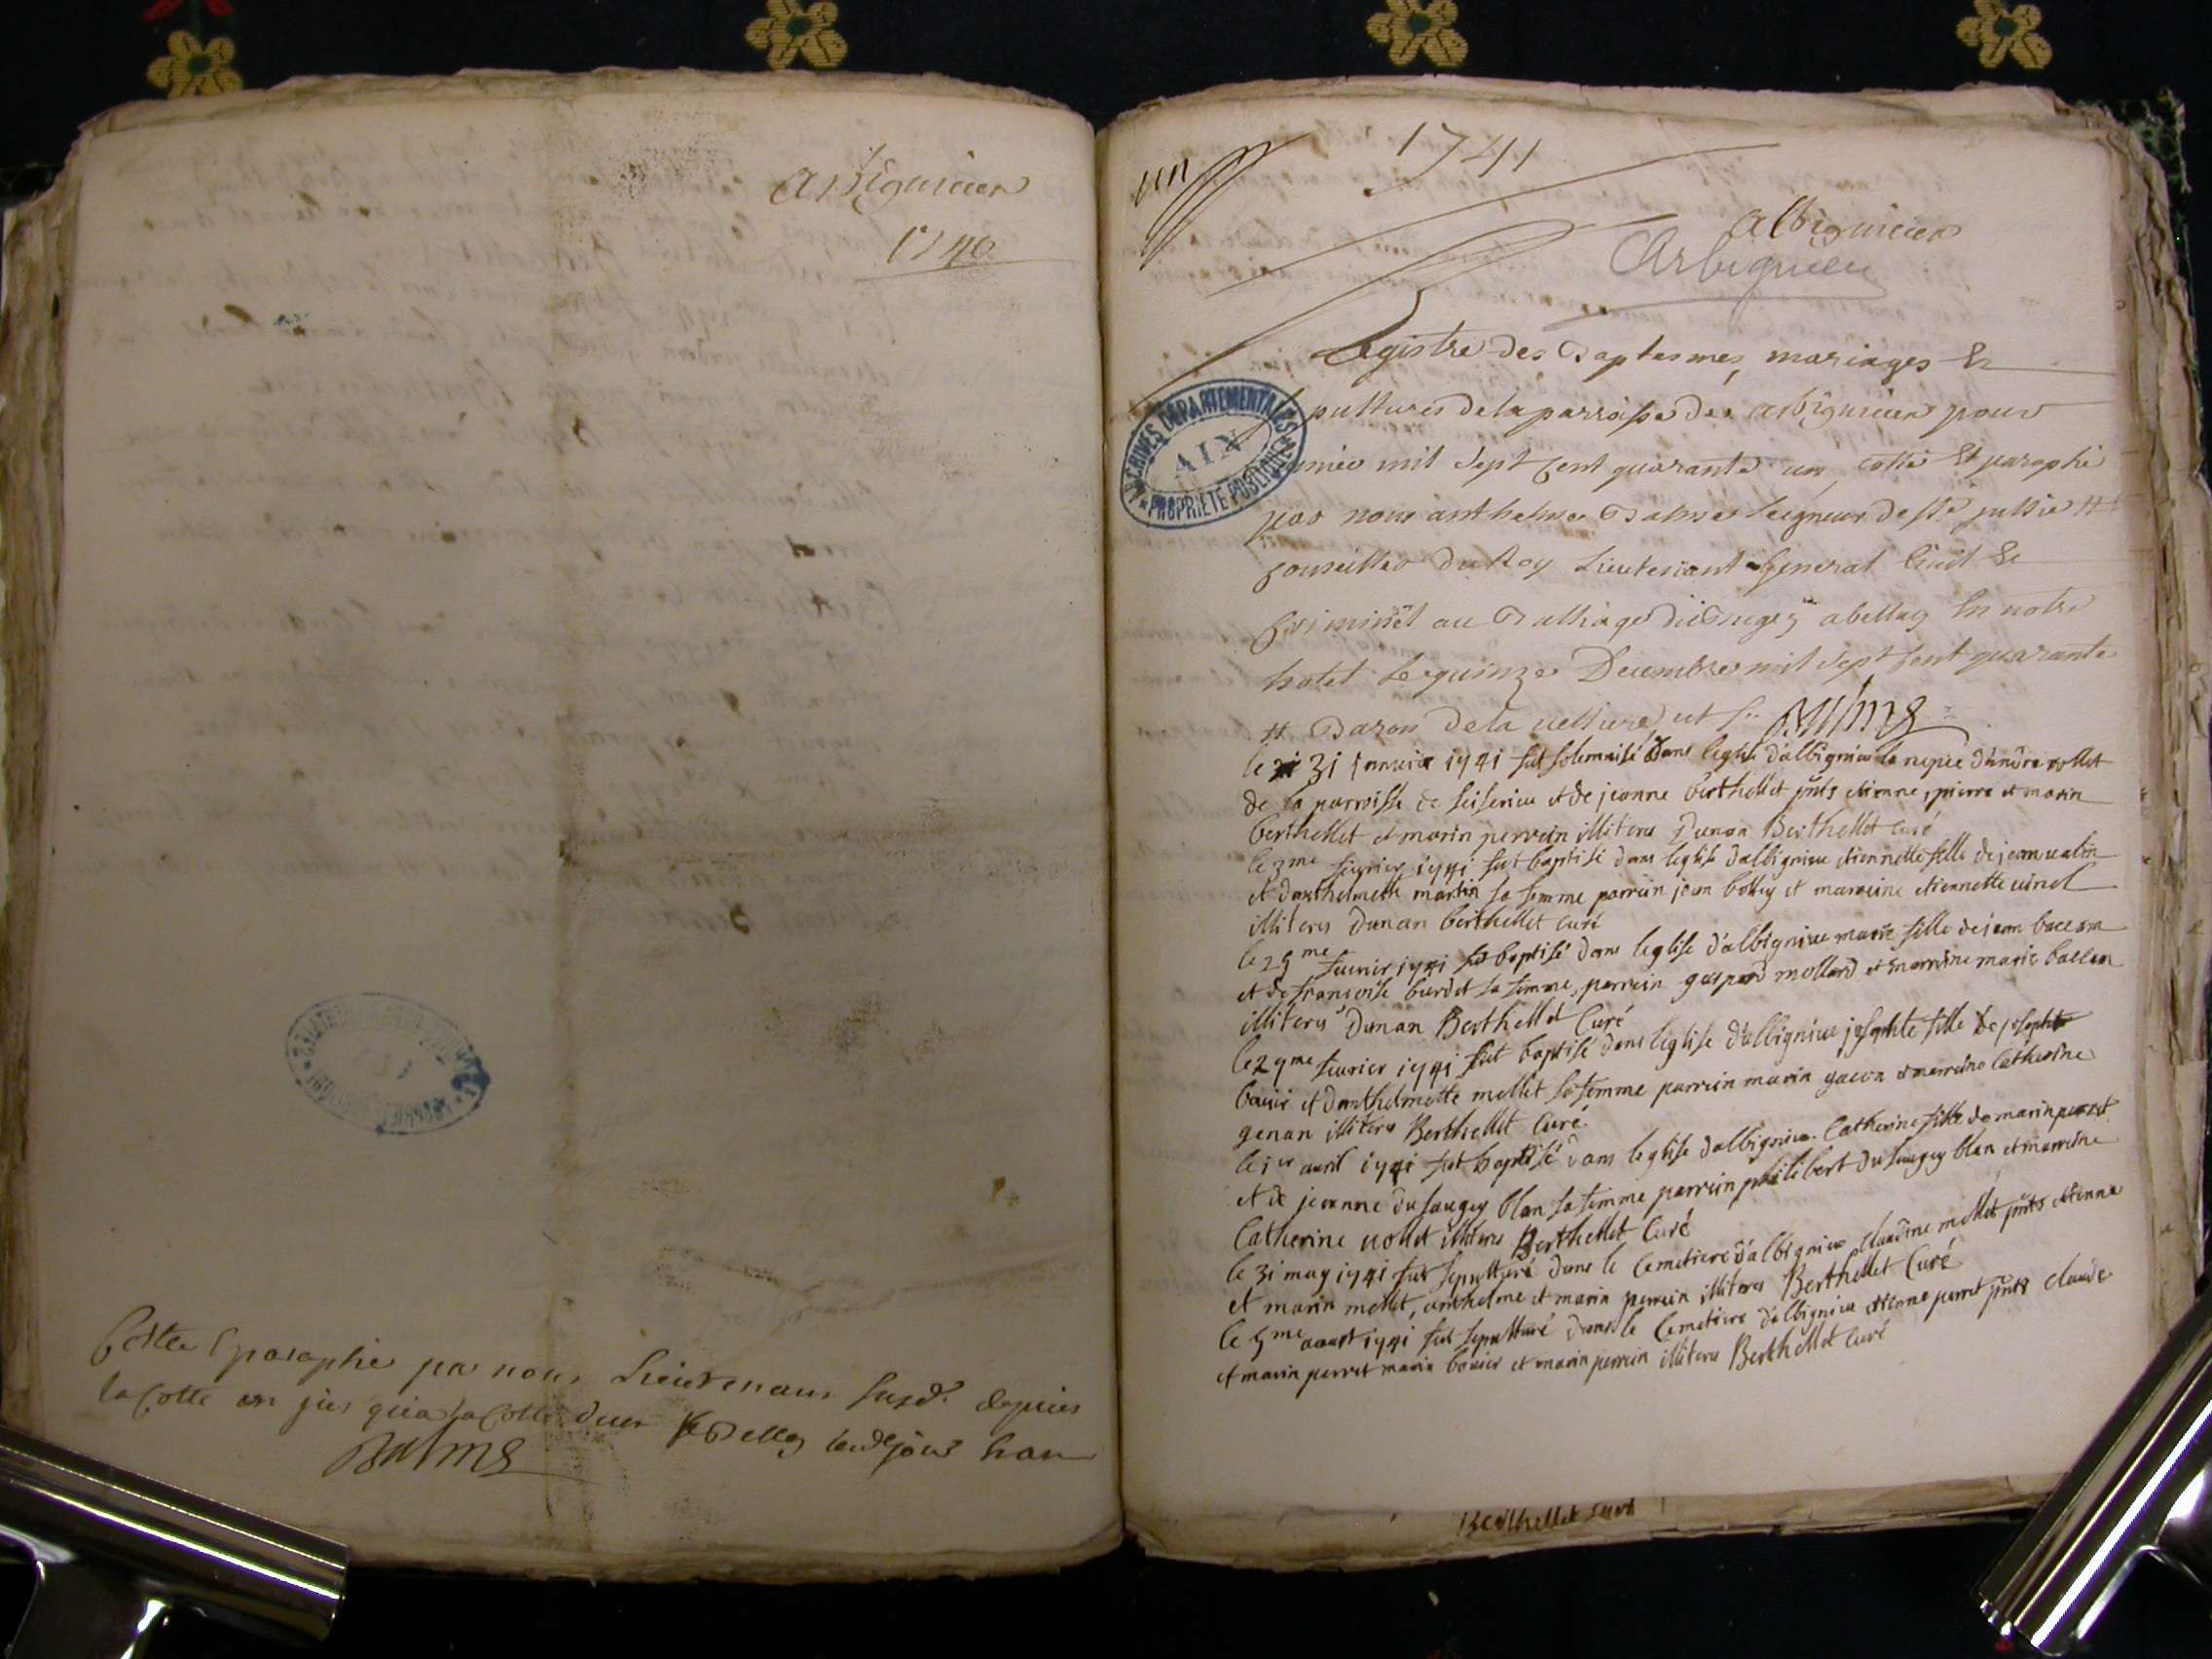 arbignieu
1740
Cotté & paraphé par nous Lieutenant susd. depuis
la cotte un jusqu'a la cotte deux Belley lesd. jour & an
Balme
un
1741
albignieu
Arbignieu
Registre des Baptesmes, mariages &
pultures de la parroisse de arbignieu pour
année mil sept cent quarante un cotté et paraphé
par nous anthelme Balme seigneur de Ste jullie #
conseiller du Roy Lieutenant General Civil &
Criminel au Balliage du Bugey a belley en notre
hotel le quinze Decembre mil sept cent quarante
# Baron de la Balme
le 31 janvier 1741 fut solemnisé dans leglise d'albignieu la nopce d'andré vollet
de la parroisse de et de jeanne berthellet pnts etienne, pierre et marin
berthellet et marin perrein illiteres Dunan Berthellet curé
le 3me fevrier 1741 fut baptisé dans leglise d'albignieu etiennette fille de jean
et d'anthelmette martin sa femme parrein jean et marreine etiennette vinet
illiteres Dunan berthellet curé
le 25me fevrier 1741 fut baptisé dans leglise d'albignieu marie fille de jean baccon
et de francoise burdet sa femme, parrein gaspard mollard et marreine marie baccon
illiteres Dunan Berthellet Curé
le 29me fevrier 1741 fut baptisé dans leglise d'albignieu josephte fille de joseph
bouvier et d'anthelmette mollet sa femme parrein marin gacon et marreine Catherine
genan illiteres Berthellet Curé
le 1er avril 1741 fut baptisé dans leglise d'albignieu Catherine fille de marin perret
et de jeanne du saugey blan sa femme parrein philibert du saugey blan et marreine
Catherine vollet illiteres Berthellet Curé
le 31 may 1741 fut sepulturé dans le Cemetiere d'albignieu claudine mollet pnts etienne
et marin mollet, anthelme et marin perrein illiteres Berthellet Curé
le 5me aoust 1741 fut sepulturé dans le Cemetiere d'albignieu etienne perret pnts claude
et marin perret marin bouvier et marin perrein illiteres Berthellet Curé
Berthellet curé
ARCHIVES DÉPARTEMENTALES
AIN
PROPRIÉTÉ PUBLIQUE